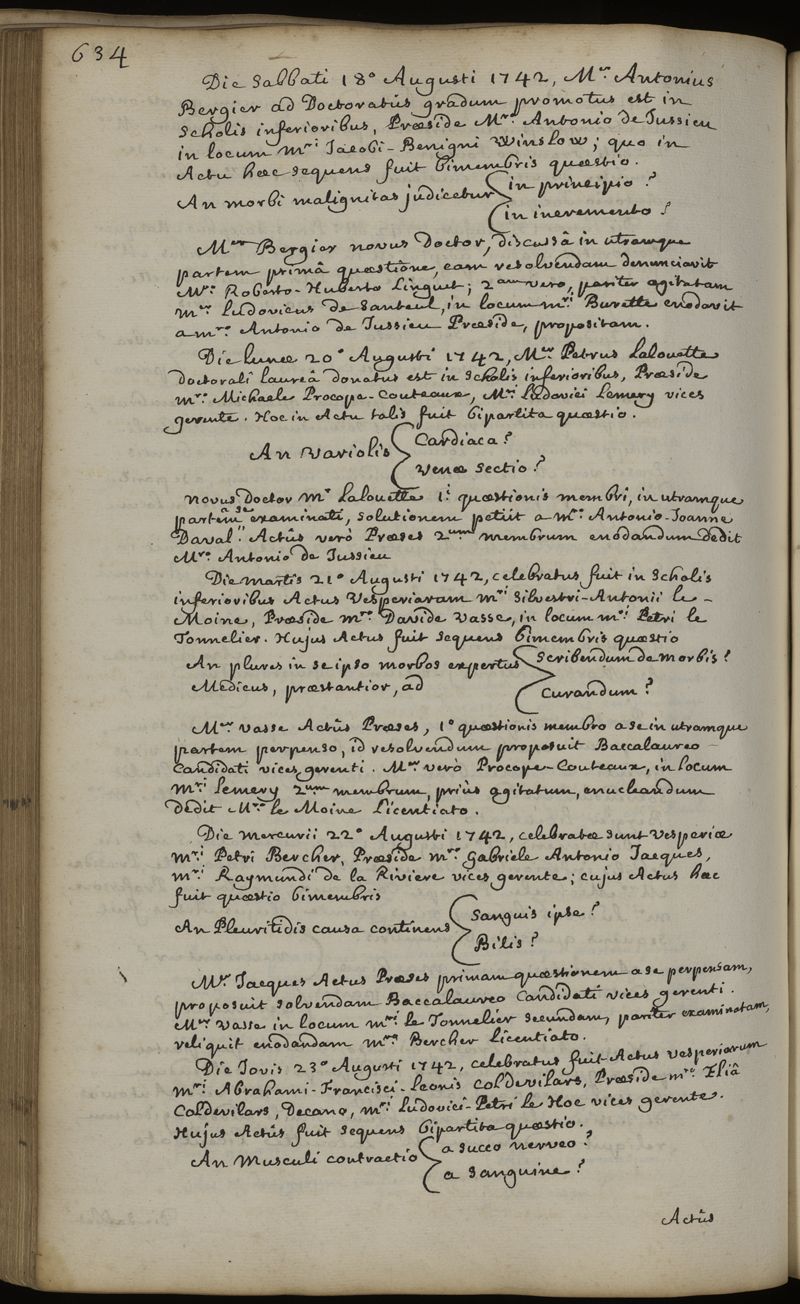 634
Die Sabbati 18° Augusti 1742, M.er Antonius
Bergier ad Doctoratûs gradum promotus est in
Scholis inferioribus, Præside M.ro Antonio de Jussieu
in locum M.ri Jacobi-Benigni Winslow; quo in
Actu hæc sequens fuit bimembris quæstio.
An morbi malignitas judicetur { in principio ?
in incremento ?
M.er Bergier novus Doctor, discussâ in utramque
partem primâ quæstione, eam resolvendam denunciavit
M.ro Roberto-Huberto Linguet; 2.am vero, pariter agitatam
M.er Ludovicus de Santeul, in locum M.ri Burette enodavit
a M.ro Antonio de Jussieu Præside, propositam.
Die lunæ 20° Augusti 1742, M.er Petrus Lalouette
doctorali laureâ donatus est in Scholis inferioribus, Præside
M.ro Michaele Procope-Couteaux, M.ri Ludovici Lemery vices
gerente. Hoc in Actu talis fuit bipartita quæstio.
An Variolis { Cardiaca ?
Venæ Sectio ?
Novus Doctor M.r Lalouette 1.i quæstionis membri, in utramque
partem a se examinati, solutionem petiit a M.ro Antonio-Joanne
Daval." Actûs verò Præses 2.um membrum enodandum dedit
M.ro Antonio de Jussieu
Die martis 21° Augusti 1742, celebratus fuit in Scholis
inferioribus Actus Vesperiarum M.ri Silvestri-Antonii le-
Moine, Præside M.ro Davide Vasse, in locum M.ri Petri le
Tonnelier. Hujus Actus fuit sequens bimembris quæstio
An plures in se ipso morbos expertus { Scribendum de morbis ?
Medicus, præstantior, ad
Curandum ?
M.er Vasse Actûs Præses, 1° quæstionis membro a se in utramque
partem perpenso, id resolvendum proposuit Baccalaureo -
Candidati vices gerenti. M.er verò Procope-Couteaux, in locum
M.ri Lemery 2.um membrum, priùs agitatum, enucleandum
dedit M.ro le Moine Licentiato.
Die Mercurii 22° Augusti 1742, celebratæ sunt Vesperiæ
M.ri Petri Bercher, Præside M.ro Gabriele Antonio Jacques,
M.ri Raymundi de la Riviere vices gerente; cujus Actus hæc
fuit quæstio bimembris
An Pleuritidis causa continens { Sanguis ipse ?
Bilis ?
M.er Jacques Actus Præses primam quæstionem a se perpensam,
proposuit solvendam Baccalaureo Candidati vices gerenti.
M.er Vasse in locum M.ri le Tonnelier secundam, pariter examinatam,
reliquit enodandam M.ro Bercher Licentiato.
Die Jovis 23° Augusti 1742, celebratus fuit Actus Vesperiarum
M.ri Abrahami-Francisci-Leonis Coldevilars, Præside M.ro Eliâ
Coldevilars, Decano, M.ri Ludovici-Petri le Hoc vices gerente.
Hujus Actûs fuit sequens bipartita quæstio.
An Musculi contractio { a succo nerveo ?
a sanguine ?
Actûs